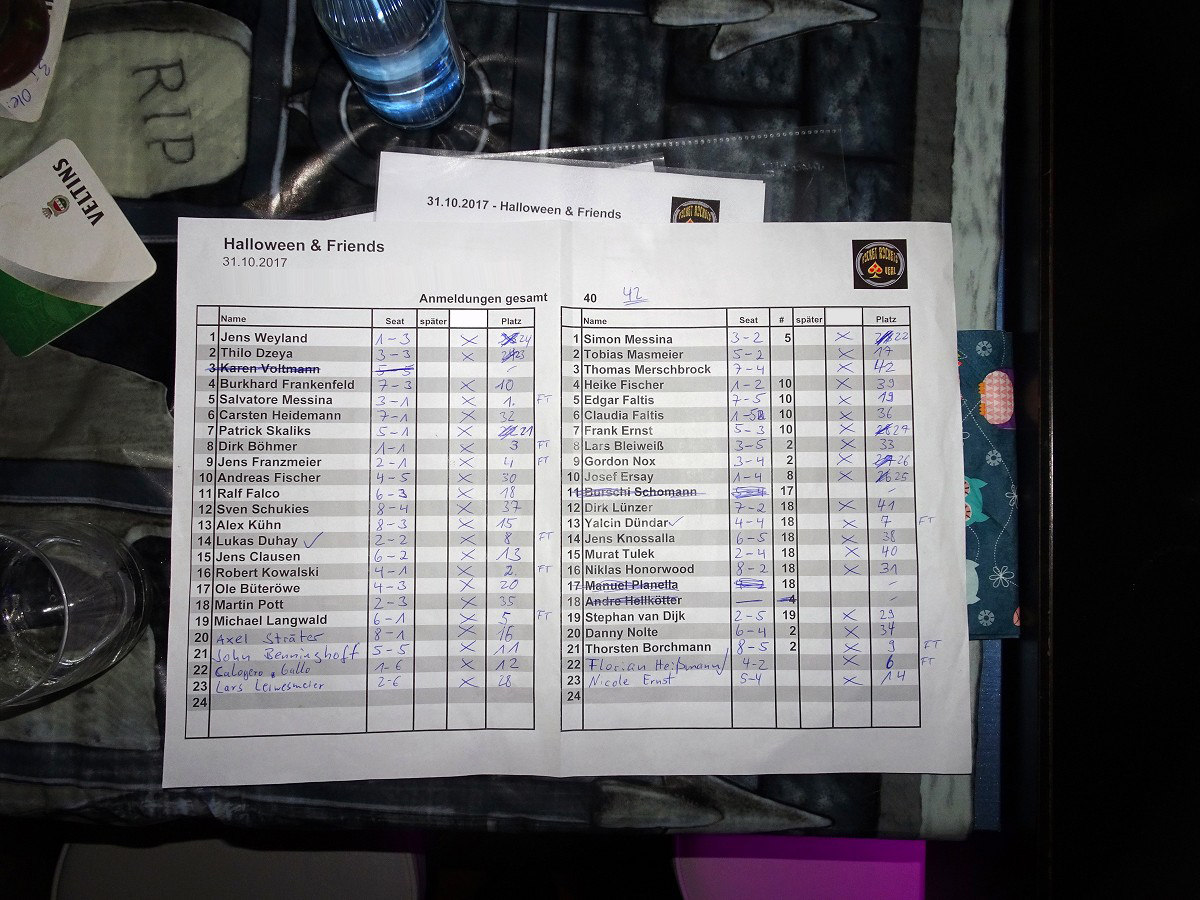 RIP
VELTINS
31.10.2017 - Halloween & Friends
Halloween & Friends
31.10.2017
Anmeldungen gesamt 40 42
Name Seat später Platz
1 Jens Weyland 1-3 X 24
2 Thilo Dzeya 3-3 X 23
3 Karen Voltmann 5-5 -
4 Burkhard Frankenfeld 7-3 X 10
5 Salvatore Messina 3-1 X 1. FT
6 Carsten Heidemann 7-1 X 32
7 Patrick Skaliks 5-1 X 21
8 Dirk Böhmer 1-1 X 3 FT
9 Jens Franzmeier 2-1 X 4 FT
10 Andreas Fischer 4-5 X 30
11 Ralf Falco 6-3 X 18
12 Sven Schukies 8-4 X 37
13 Alex Kühn 8-3 X 15
14 Lukas Duhay ✓ 2-2 X 8 FT
15 Jens Clausen 6-2 X 13
16 Robert Kowalski 4-1 X 2. FT
17 Ole Büteröwe 4-3 X 20
18 Martin Pott 2-3 X 35
19 Michael Langwald 6-1 X 5 FT
20 Axel Sträter 8-1 X 16
21 John Benninghoff 5-5 X 11
22 Calogero Gallo 1-6 X 12
23 Lars 2-6 X 28
24
Name Seat # später Platz
1 Simon Messina 3-2 5 X 22
2 Tobias Masmeier 5-2 X 17
3 Thomas Merschbrock 7-4 X 42
4 Heike Fischer 1-2 10 X 39
5 Edgar Faltis 7-5 10 X 19
6 Claudia Faltis 10 X 36
7 Frank Ernst 5-3 10 X 27
8 Lars Bleiweiß 3-5 2 X 33
9 Gordon Nox 3-4 2 X 26
10 Josef Ersay 1-4 8 X 25
11 Burschi Schomann 5-4 17 -
12 Dirk Lünzer 7-2 18 X 41
13 Yalcin Dündar ✓ 4-4 18 X 7 FT
14 Jens Knossalla 6-5 18 X 38
15 Murat Tulek 2-4 18 X 40
16 Niklas Honorwood 8-2 18 X 31
17 Manuel Planella 18 -
18 Andre Heilkötter 4 -
19 Stephan van Dijk 2-5 19 X 29
20 Danny Nolte 6-4 2 X 34
21 Thorsten Borchmann 8-5 2 X 9 FT
22 Florian Heißmann ✓ 4-2 X 6 FT
23 Nicole Ernst 5-4 X 14
24